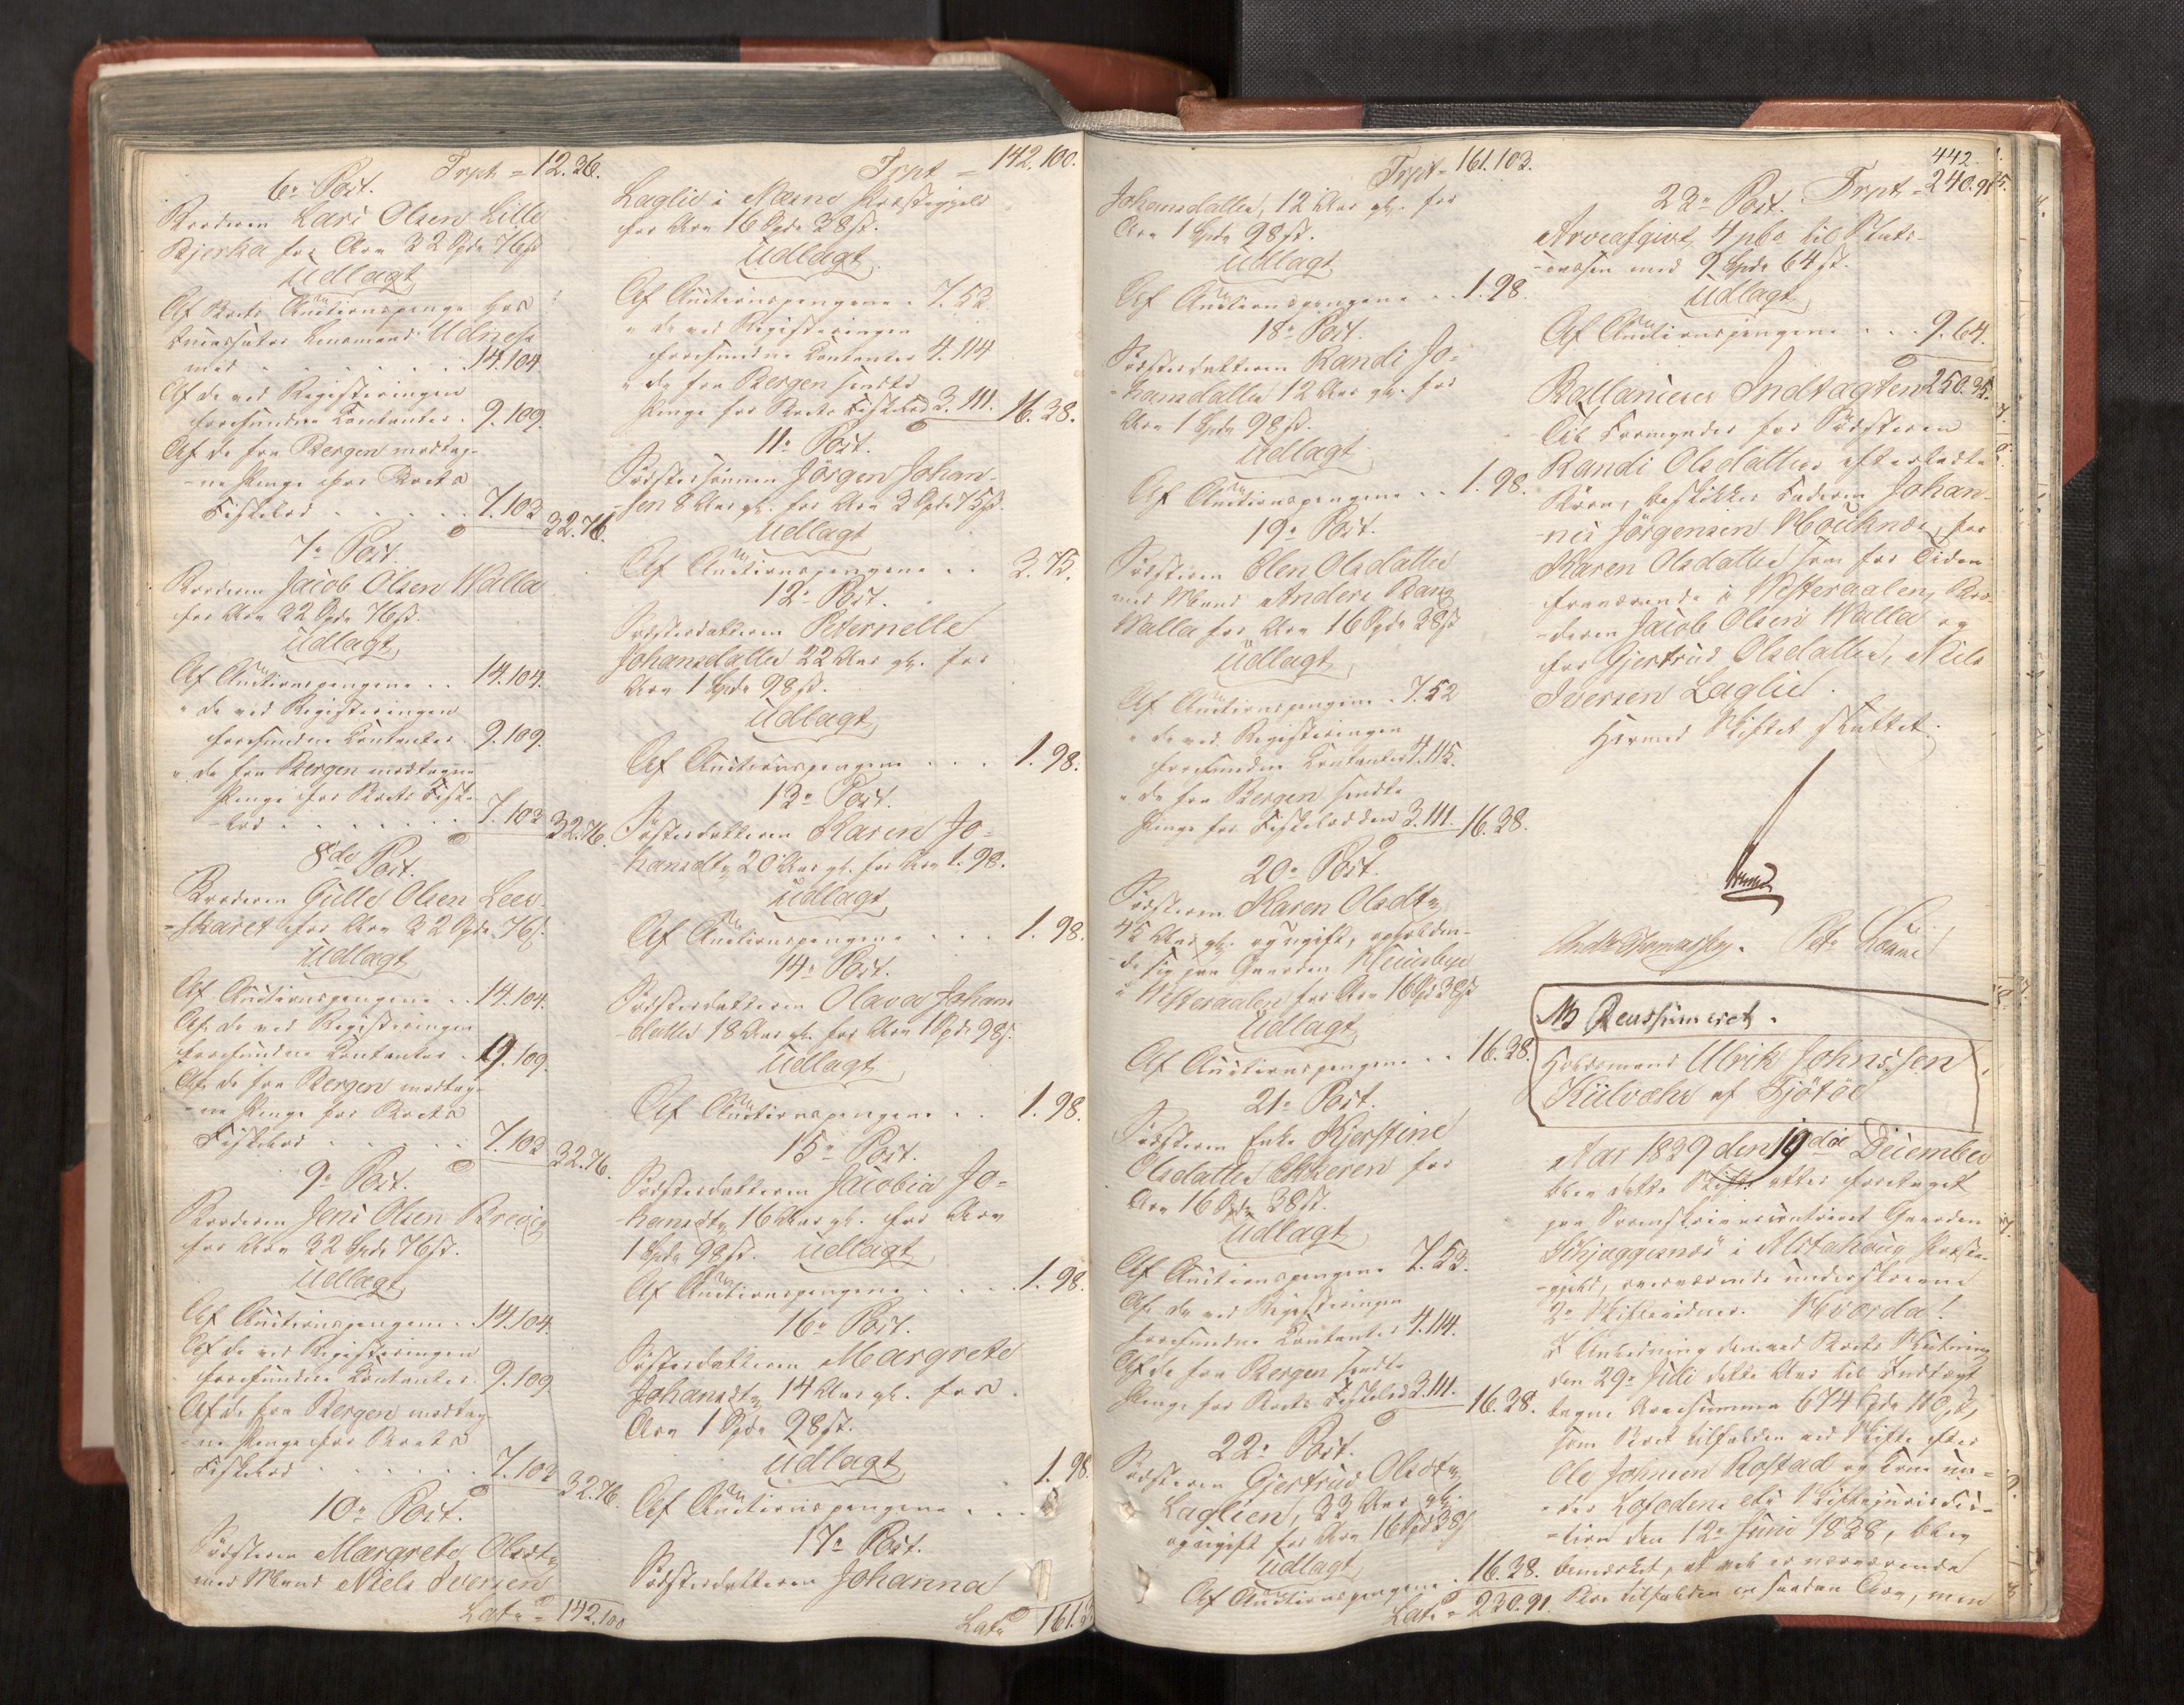 Trpt = 12.36.
6te Post.
Broderen Lars Olsen Lille
Bjerka for Arv 32 Spd 76 ß
Udlagt
Af Boets Auctionspenge hos
Incassator Lensmand Udnes
med . . . . . . 14.104
Af de ved Registeringen
forefundne Contanter . 9.109.
Af de fra Bergen modtag-
-ne Penge for Boets
Fiskelod . . . . . 7.103 32.76.
7de Post.
Broderen Jacob Olsen Walla
for Arv 32 Spd 76 ß.
Udlagt
Af Auctionspengene . . 14.104.
" de ved Registeringen
forefundne Contanter . 9.109.
" de fra Bergen modtagne
Penge for Boets Fiske-
-lod . . . . . . 7.103 32.76.
8de Post.
Broderen Gulle Olsen Leer-
-skaret for Arv 32 Spd 76 ß.
Udlagt
Af Auctionspengene . . 14.104.
Af de ved Registeringen
forefundne Contanter . 9.109.
Af de fra Bergen modtag-
-ne Penge for Boets
Fiskelod . . . . . 7.103 32.76.
9de Post.
Broderen Jens Olsen Brevig
for Arv 32 Spd 76 ß.
Udlagt
Af Auctionspengene . . 14.104.
Af de ved Registeringen
forefundne Contanter . 9.109.
Af de fra Bergen modtag-
-ne Penge for Boets
Fiskelod . . . . . 7.103 32.76.
10de Post.
Södsteren Margrete Olsdtr
med Mand Niels Iversen
Late = 142.100
Trpt = 142.100.
Laglie i Næsne Præstegjeld
for Arv 16 Spd 38 ß.
Udlagt
Af Auctionspengene . 7.53.
" de ved Registeringen
forefundne Contanter 4.114
" de fra Bergen sendte
Penge for Boets Fiskelod 3.111. 16.38.
11te Post.
Södstersönnen Jörgen Johan-
-sen 8 Aar gl. for Arv 3 Spd 75 ß.
Udlagt
Af Auctionspengene . . 3.75.
12te Post.
Södsterdatteren Peternelle
Johansdatter 22 Aar gl. for
Arv 1 Spd 98 ß.
Udlagt
Af Auctionspengene . . . 1.98.
13de Post.
Södsterdatteren Karen Jo-
-hansdtr 20 Aar gl. for Arv 1.98.
Udlagt
Af Auctionspengene . . . 1.98.
14de Post.
Södsterdatteren Olava Johans
-datter 18 Aar gl. for Arv 1 Spd 98 ß.
Udlagt
Af Auctionspengene . . 1.98.
15de Post.
Södsterdatteren Jacobia Jo-
-hansdtr 16 Aar gl. for Arv
1 Spd 98 ß. Udlagt
Af Auctionspengene . . . . 1.98.
16de Post.
Södsterdatteren Margrete
Johansdtr 14 Aar gl. for
Arv 1 Spd 98 ß.
Udlagt
Af Auctionspengene . . . 1.98.
17de Post.
Södsterdatteren Johanna
Late 161.
Trpt = 161.103.
Johansdatter, 12 Aar gl. for
Arv 1 Spd 98 ß.
Udlagt
Af Auctionspengene . . 1.98.
18de Post.
Södsterdatteren Randi Jo-
-hansdatter 12 Aar gl. for
Arv 1 Spd 98 ß.
Udlagt
Af Auctionspengene . . 1.98.
19de Post.
Södsteren Elen Olsdatter
med Mand Anders Bang
Walla for Arv 16 Spd 38 ß
Udlagt
Af Auctionspengene . 7.52
" de ved Registeringen
forefundne Contanter 4.115.
" de fra Bergen sendte
Penge for Fiskelodden 3.111. 16.38.
20de Post.
Södsteren Karen Olsdtr
45 Aar gl. og ugift, opholden-
-de sig paa Gaarden
i Vesteraalen for Arv 16 Spd 38 ß
Udlagt
Af Auctionspengene . . 16.38.
21de Post.
Södsteren Enke Kjerstine
Olsdatter for
Arv 16 Spd 38 ß.
Udlagt
Af Auctionspengene 7.53.
Af de ved Registeringen
forefundne Contanter 4.114.
Af de fra Bergen sendte
Penge for Boets Fiskelod 3.111. 16.38.
22de Post.
Södsteren Gjertrud Olsdtr
Laglien, 33 Aar gl.
og ugift for Arv 16 Spd 38 ß
Udlagt
Af Auctionspengene . 16.38.
Late = 230.91.
442.
23de Post. Trpt = 240.91
Arveafgivt 4 pCo til Stats-
-cassen med 9 Spd 64 ß.
Udlagt
Af Auctionspengene . . . 9.64.
Ballancerer Indtægten 250.35.
Til Formynder for Södsteren
Randi Olsdatters efterladte
Börn, beskikkes Faderen Johan-
-nes Jörgensen for
Karen Olsdatter som for Tiden
fraværende i Vesteraalen, Bro-
-deren Jacob Olsen Walla og
for Gjertrud Olsdatter, Niels
Iversen Laglie.
Hermed Skiftet sluttet.
NB Reassumeret.
Ulrik Johnssen
Kiilvæhr af Tjötöe
Aar 1839 den 19de December
blev dette Skifte atter foretaget
paa Sorenskrivercontoiret Gaarden
Skjæggesnæs i Alstahoug Præste-
-gjeld, overværende underskrevne
2de Skiftevidner. Hvorda!
I Anledning den ved Boets Slutning
den 29de Juli dette Aar til Indtægt
tagne Arvesumma 674 Spd 110 ß,
som Boet tilfalden ved Skifte efter
Ole Johnsen Rostad og Kone un-
-der Lofodens etc. Skiftejurisdic-
-tion den 12te Juni 1838, blev
bemærket, at vel er nærværende
Boe tilfalden en saadan Arv, men